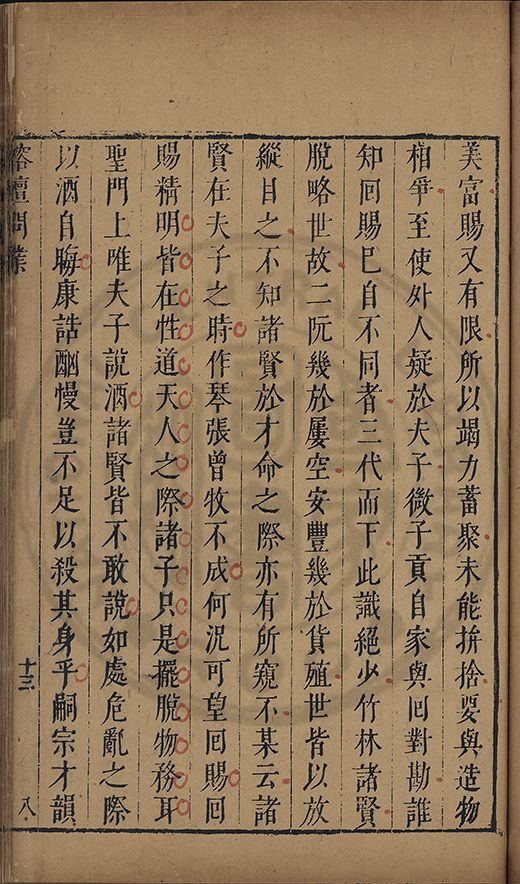 美富賜又有限所以竭力蓄聚未能拚捨要與造物
相爭至使外人疑於夫子微子貢自家與回對勘誰
知回賜已自不同者三代而下此識絕少竹林諸賢
脫略世故二阮幾於屢空安豐幾於貨殖世皆以放
縱目之不知諸賢於才命之際亦有所窺不某云諸
賢在夫子之時作琴張曾牧不成何況可望回賜回
賜精明皆在性道天人之際諸子只是擺脫物務耳
聖門上唯夫子說酒諸賢皆不敢說如處危亂之際
以酒自晦康誥酗慢豈不足以殺其身乎嗣宗才韻
榕壇問業
十三
八